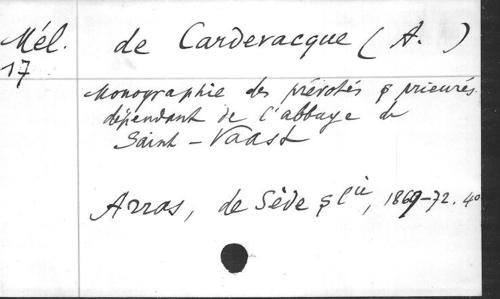 Mél. de Cardevacque (A.)
17
Monographie des prévotés & prieurés
dépendant de l'abbaye de
Saint-Vaast
Arras, de Sède & Cie, 1869-72. 4o